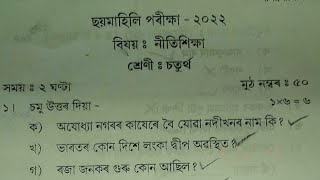 ছয়মাহিলি পৰীক্ষা - ২০২২
বিষয়ঃ নীতিশিক্ষা
শ্ৰেণীঃ চতুৰ্থ
সময়ঃ ২ ঘণ্টা মুঠ নম্বৰঃ ৫০
১। চমু উত্তৰ দিয়া - ১×৬ = ৬
ক) অযোধ্যা নগৰৰ কাষেৰে বৈ যোৱা নদীখনৰ নাম কি?
খ) ভাৰতৰ কোন দিশে লংকা দ্বীপ অৱস্থিত?
গ) ৰজা জনকৰ গুৰু কোন আছিল?